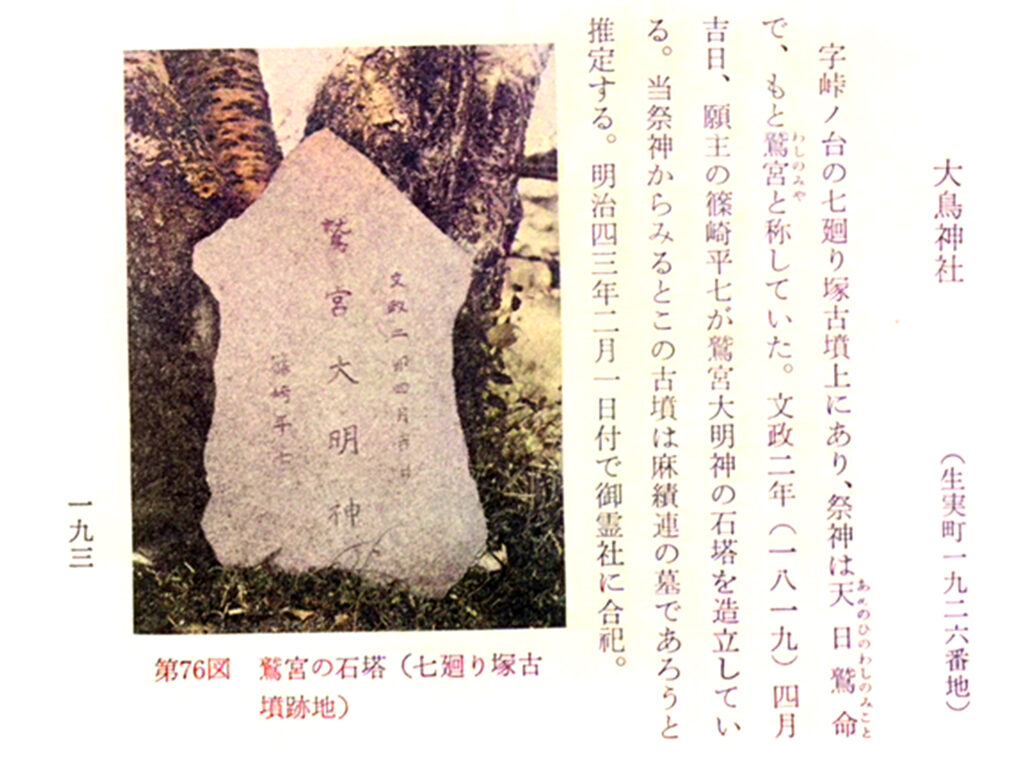 大鳥神社　（生実町一九二六番地）
字峠ノ台の七廻り塚古墳上にあり、祭神は天日鷲命
あめのひのわしのみこと
で、もと鷲宮と称していた。文政二年（一八一九）四月
わしのみや
吉日、願主の篠崎平七が鷲宮大明神の石塔を造立してい
る。当祭神からみるとこの古墳は麻績連の墓であろうと
推定する。明治四三年二月一日付で御霊社に合祀。
文政二卯四月吉日
鷲宮大明神
篠崎平七
第76図　鷲宮の石塔（七廻り塚古
墳跡地）
一九三